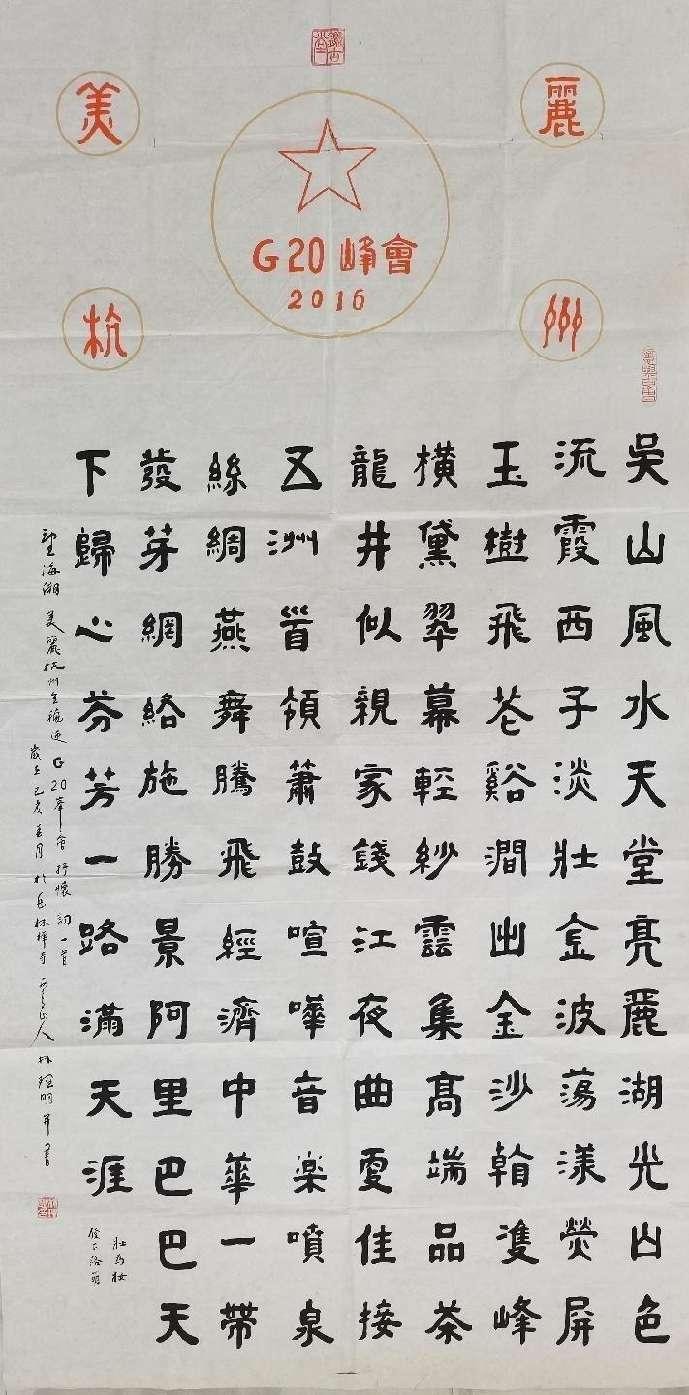 美麗
杭州
G20峰會
2016
吴山風水天堂亮麗湖光山色
流霞西子淡壯金波蕩漾熒屏
玉樹飛花谿澗出金沙翰隻峰
横黛翠幕輕紗雲集髙端品茶
龍井似親家錢江夜曲更佳接
五洲首領簫鼓喧嘩音楽噴泉
絲綢燕舞騰飛經濟中華一帶
發芽網絡施勝景阿里巴巴天
下歸心芬芳一路滿天涯
望海潮 美麗杭州 迎G20峯會抒懷詞一首
歲在己亥 月於 林禪寺 林 明并書
壯為妝